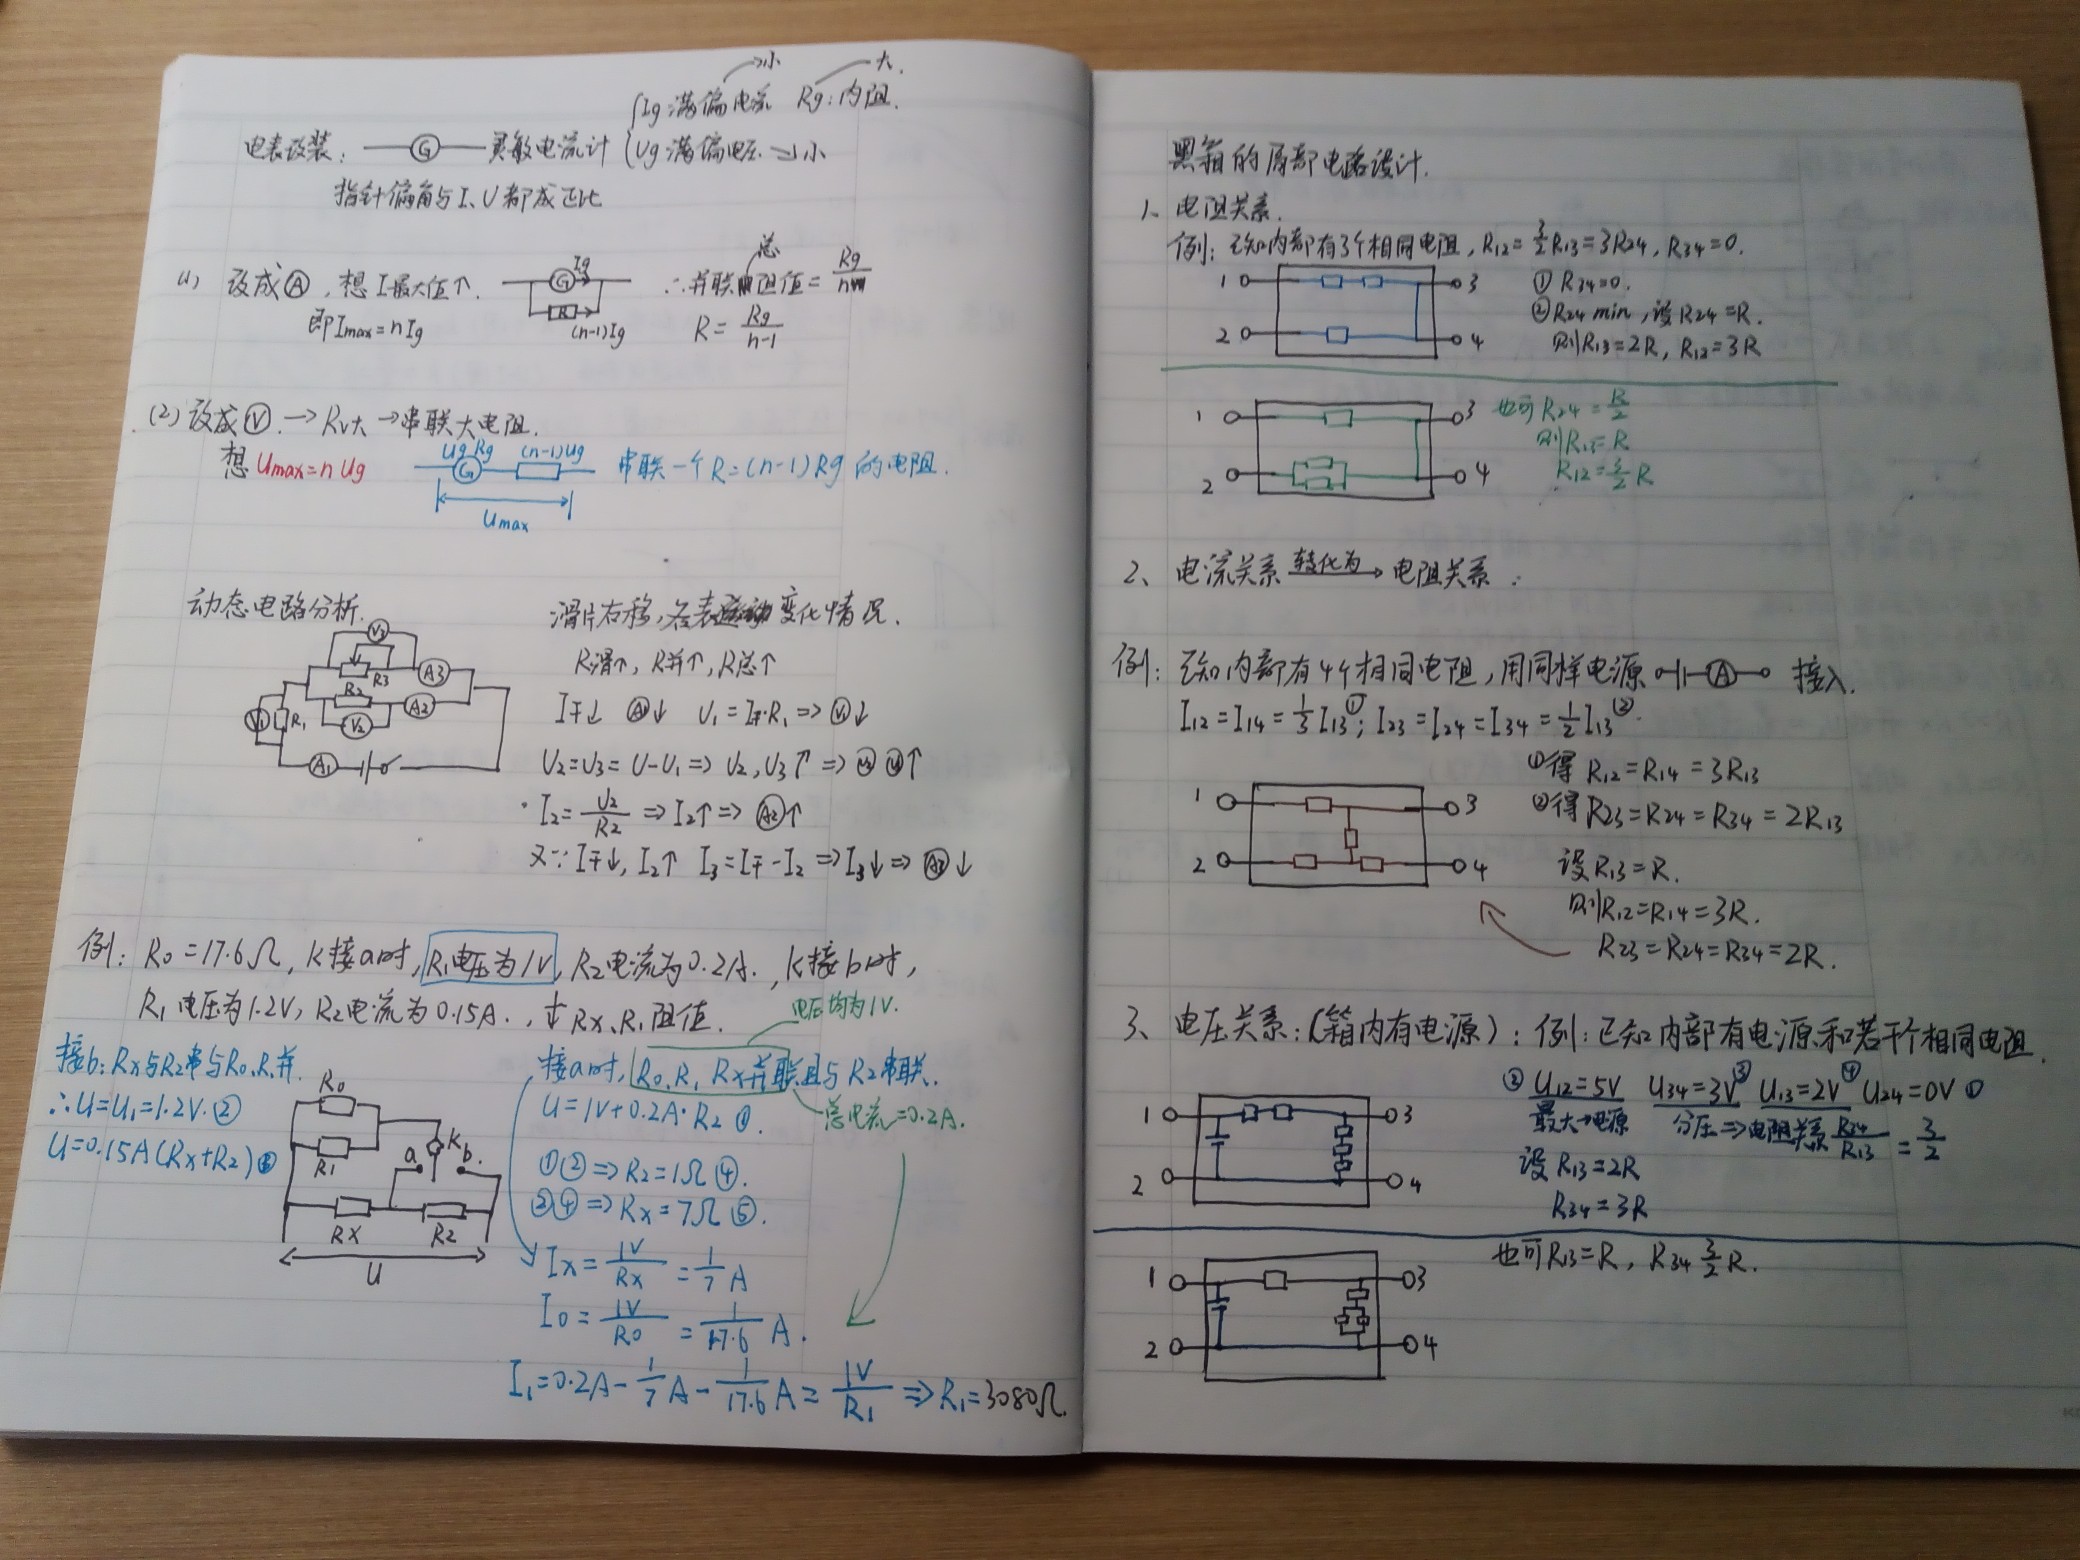 小 大.
Ig满偏电流 Rg:内阻.
电表改装: G 灵敏电流计 Ug满偏电压→小
指针偏角与I、U都成正比
(1) 改成Ⓐ,想I最大值↑. Ig G R (n-1)Ig ∴并联总阻值=Rg/n
即Imax=nIg R=Rg/(n-1)
(2)改成Ⓥ.→Rv大→串联大电阻.
想Umax=nUg Ug Rg G (n-1)Ug 串联一个R=(n-1)Rg的电阻.
Umax
动态电路分析. 滑片右移,各表变化情况.
V3 R3 A3 R2 V2 A2 V1 R1 A1
R滑↑,R并↑,R总↑
I干↓ Ⓐ↓ U1=I干·R1=>Ⓥ1↓
U2=U3=U-U1=>U2,U3↑=>↑
I2=U2/R2=>I2↑=>A2↑
又∵I干↓,I2↑ I3=I干-I2=>I3↓=>A3↓
例:R0=17.6Ω,K接a时,R1电压为1V,R2电流为0.2A.,K接b时,
R1电压为1.2V,R2电流为0.15A.,求Rx、R1阻值.
电压均为1V.
接b:Rx与R2串与R0、R1并.
∴U=U1=1.2V.②
U=0.15A(Rx+R2)③
R0 R1 K a b. RX R2 U
接a时,R0、R1、Rx并联且与R2串联.
U=1V+0.2A·R2①. 总电流=0.2A.
①②=>R2=1Ω④.
②④=>Rx=7Ω⑤.
Ix=1V/Rx=1/7A
I0=1V/R0=1/17.6A.
I1=0.2A-1/7A-1/17.6A=1V/R1=>R1=3080Ω.
黑箱的局部电路设计.
1、电阻关系.
例:已知内部有3个相同电阻,R12=3/2R13=3R24,R34=0.
1 3 ①R34=0.
②R24 min,设R24=R.
2 4 则R13=2R,R12=3R
1 3 也可R24=R/2
则R13=R
2 4 R12=3/2R
2、电流关系 转化为→ 电阻关系:
例:已知内部有4个相同电阻,用同样电源 A 接入.
I12=I14=1/3I13①;I23=I24=I34=1/2I13②.
①得R12=R14=3R13
1 3 ②得R23=R24=R34=2R13
2 4 设R13=R.
则R12=R14=3R.
R23=R24=R34=2R.
3、电压关系:(箱内有电源):例:已知内部有电源和若干个相同电阻.
②U12=5V U34=3V③ U13=2V④ U24=0V①
1 3 最大→电源 分压=>电阻关系R34/R13=3/2
设R13=2R
2 4 R34=3R
也可R13=R,R34 3/2R.
1 3
2 4